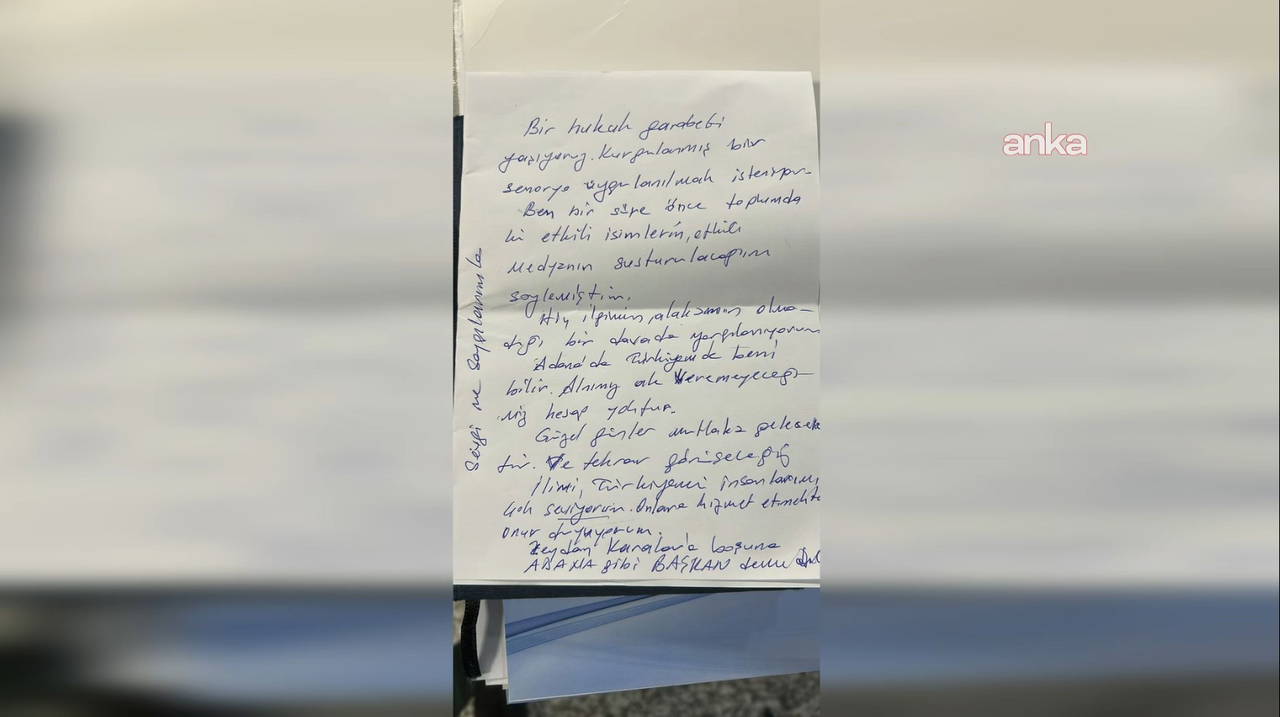 Bir hukuk garabeti
yaşıyoruz. Kurgulanmış bir
senaryo uygulanılmak isteniyor.
Ben bir süre önce toplumda
ki etkili isimlerin, etkili
medyanın susturulacağını
söylemiştim.
Hiç ilgimin, alakamın olma-
dığı bir davada yargılanıyorum
Adana'da Türkiyem'de beni
bilir. Alnımız ak veremeyeceği-
miz hesap yoktur.
Güzel günler mutlaka gelecek
tir. Ve tekrar görüşeceğiz
İlimi, Türkiyemi insanlarımı,
çok seviyorum. Onlara hizmet etmekte
onur duyuyorum.
Zeydan Karalar'a boşuna
ADANA gibi BAŞKAN
Sevgi ve Saygılarımla
anka